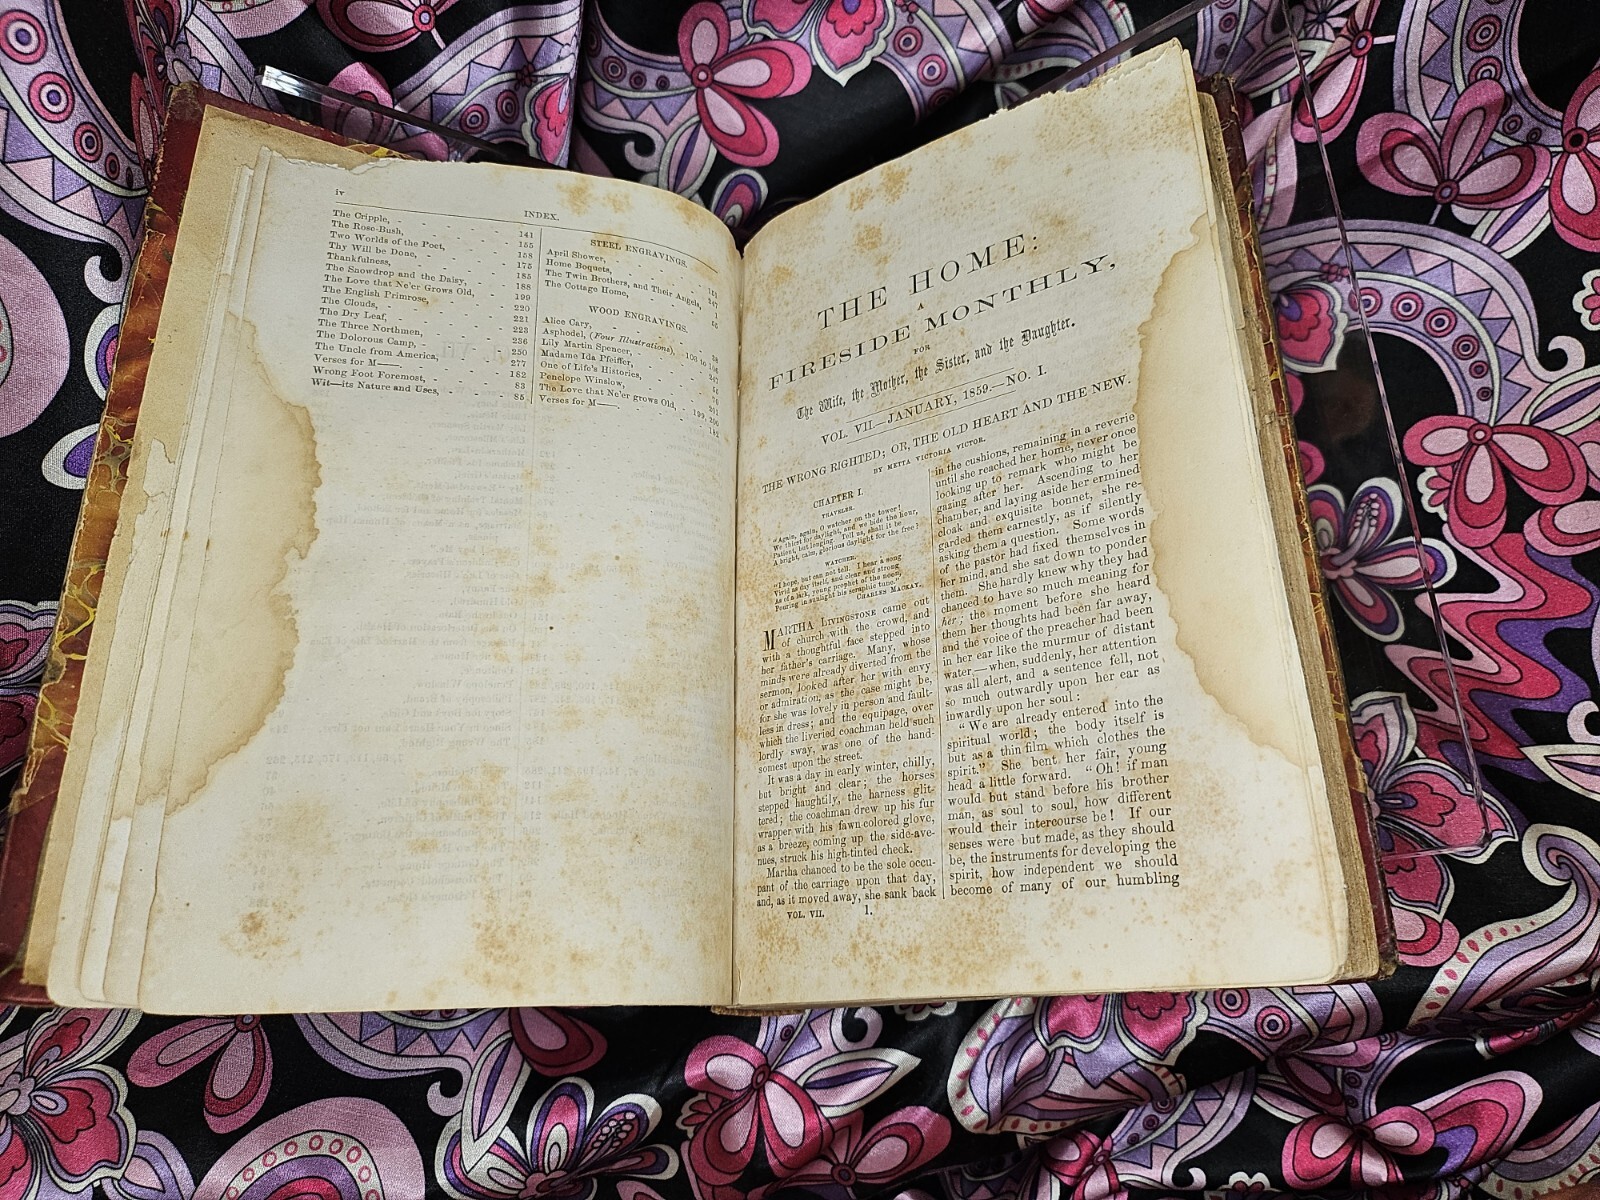 iv
INDEX.
The Cripple, - - - - 141
The Rose-Bush, - - - - 155
Two Worlds of the Poet, - - - 158
Thy Will be Done, - - - - 175
Thankfulness, - - - - 185
The Snowdrop and the Daisy, - - - 188
The Love that Ne'er Grows Old, - - 199
The English Primrose, - - - 220
The Clouds, - - - - 221
The Dry Leaf, - - - - 223
The Three Northmen, - - - 236
The Dolorous Camp, - - - 250
The Uncle from America, - - - 277
Verses for M——. - - - - 182
Wrong Foot Foremost, - - - 83
Wit—its Nature and Uses, - - - 85
STEEL ENGRAVINGS.
April Shower,
Home Boquets,
The Twin Brothers, and Their Angels,
The Cottage Home,
WOOD ENGRAVINGS.
Alice Cary,
Asphodel, (Four Illustrations),
Lily Martin Spencer,
Madame Ida Pfeiffer,
One of Life's Histories,
Penelope Winslow,
The Love that Ne'er grows Old, - 199, 200
Verses for M—— 182
THE HOME:
A
FIRESIDE MONTHLY,
FOR
The Wife, the Mother, the Sister, and the Daughter.
VOL. VII.—JANUARY, 1859.—NO. I.
THE WRONG RIGHTED; OR, THE OLD HEART AND THE NEW.
BY METTA VICTORIA VICTOR.
CHAPTER I.
TRAVELER.
"Again, again, O watcher on the tower!
We thirst for daylight, and we bide the hour,
Patient, but longing. Tell us, shall it be
A bright, calm, glorious daylight for the free?
WATCHER.
"I hope, but can not tell. I hear a song
Vivid as day itself, and clear and strong
As of a lark, young prophet of the noon,
Pouring in sunlight his seraphic tune."
CHARLES MACKAY.
MARTHA LIVINGSTONE came out
of church with the crowd, and
with a thoughtful face stepped into
her father's carriage. Many, whose
minds were already diverted from the
sermon, looked after her with envy
or admiration, as the case might be,
for she was lovely in person and fault-
less in dress; and the equipage, over
which the liveried coachman held such
lordly sway, was one of the hand-
somest upon the street.
It was a day in early winter, chilly,
but bright and clear; the horses
stepped haughtily, the harness glit-
tered; the coachman drew up his fur
wrapper with his fawn-colored glove,
as a breeze, coming up the side-ave-
nues, struck his high-tinted check.
Martha chanced to be the sole occu-
pant of the carriage upon that day,
and, as it moved away, she sank back
in the cushions, remaining in a reverie
until she reached her home, never once
looking up to remark who might be
gazing after her. Ascending to her
chamber, and laying aside her ermined
cloak and exquisite bonnet, she re-
garded them earnestly, as if silently
asking them a question. Some words
of the pastor had fixed themselves in
her mind, and she sat down to ponder
them. She hardly knew why they had
chanced to have so much meaning for
her; the moment before she heard
them her thoughts had been far away,
and the voice of the preacher had been
in her ear like the murmur of distant
water,—when, suddenly, her attention
was all alert, and a sentence fell, not
so much outwardly upon her ear as
inwardly upon her soul:
"We are already entered into the
spiritual world; the body itself is
but as a thin film which clothes the
spirit." She bent her fair, young
head a little forward. "Oh! if man
would but stand before his brother
man, as soul to soul, how different
would their intercourse be! If our
senses were but made, as they should
be, the instruments for developing the
spirit, how independent we should
become of many of our humbling
VOL. VII. 1.